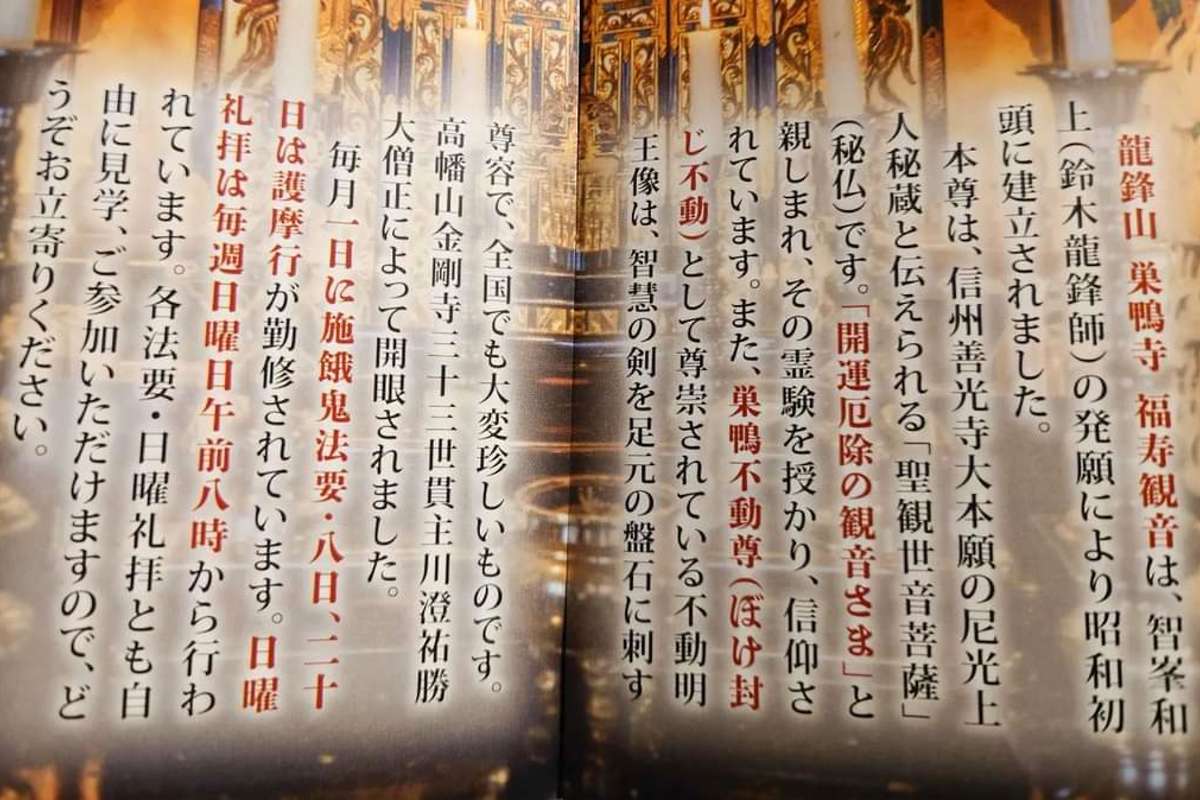 龍鋒山 巣鴨寺 福寿観音は、智峯和
上(鈴木龍鋒師)の発願により昭和初
頭に建立されました。
本尊は、信州善光寺大本願の尼光上
人秘蔵と伝えられる「聖観世音菩薩」
(秘仏)です。「開運厄除の観音さま」と
親しまれ、その霊験を授かり、信仰さ
れています。また、巣鴨不動尊(ぼけ封
じ不動)として尊崇されている不動明
王像は、智慧の剣を足元の盤石に刺す
尊容で、全国でも大変珍しいものです。
高幡山金剛寺三十三世貫主川澄祐勝
大僧正によって開眼されました。
毎月一日に施餓鬼法要・八日、二十
日は護摩行が勤修されています。日曜
礼拝は毎週日曜日午前八時から行わ
れています。各法要・日曜礼拝とも自
由に見学、ご参加いただけますので、ど
うぞお立寄りください。